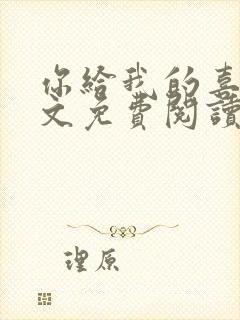 你給我的喜
文免費閱讀
理原